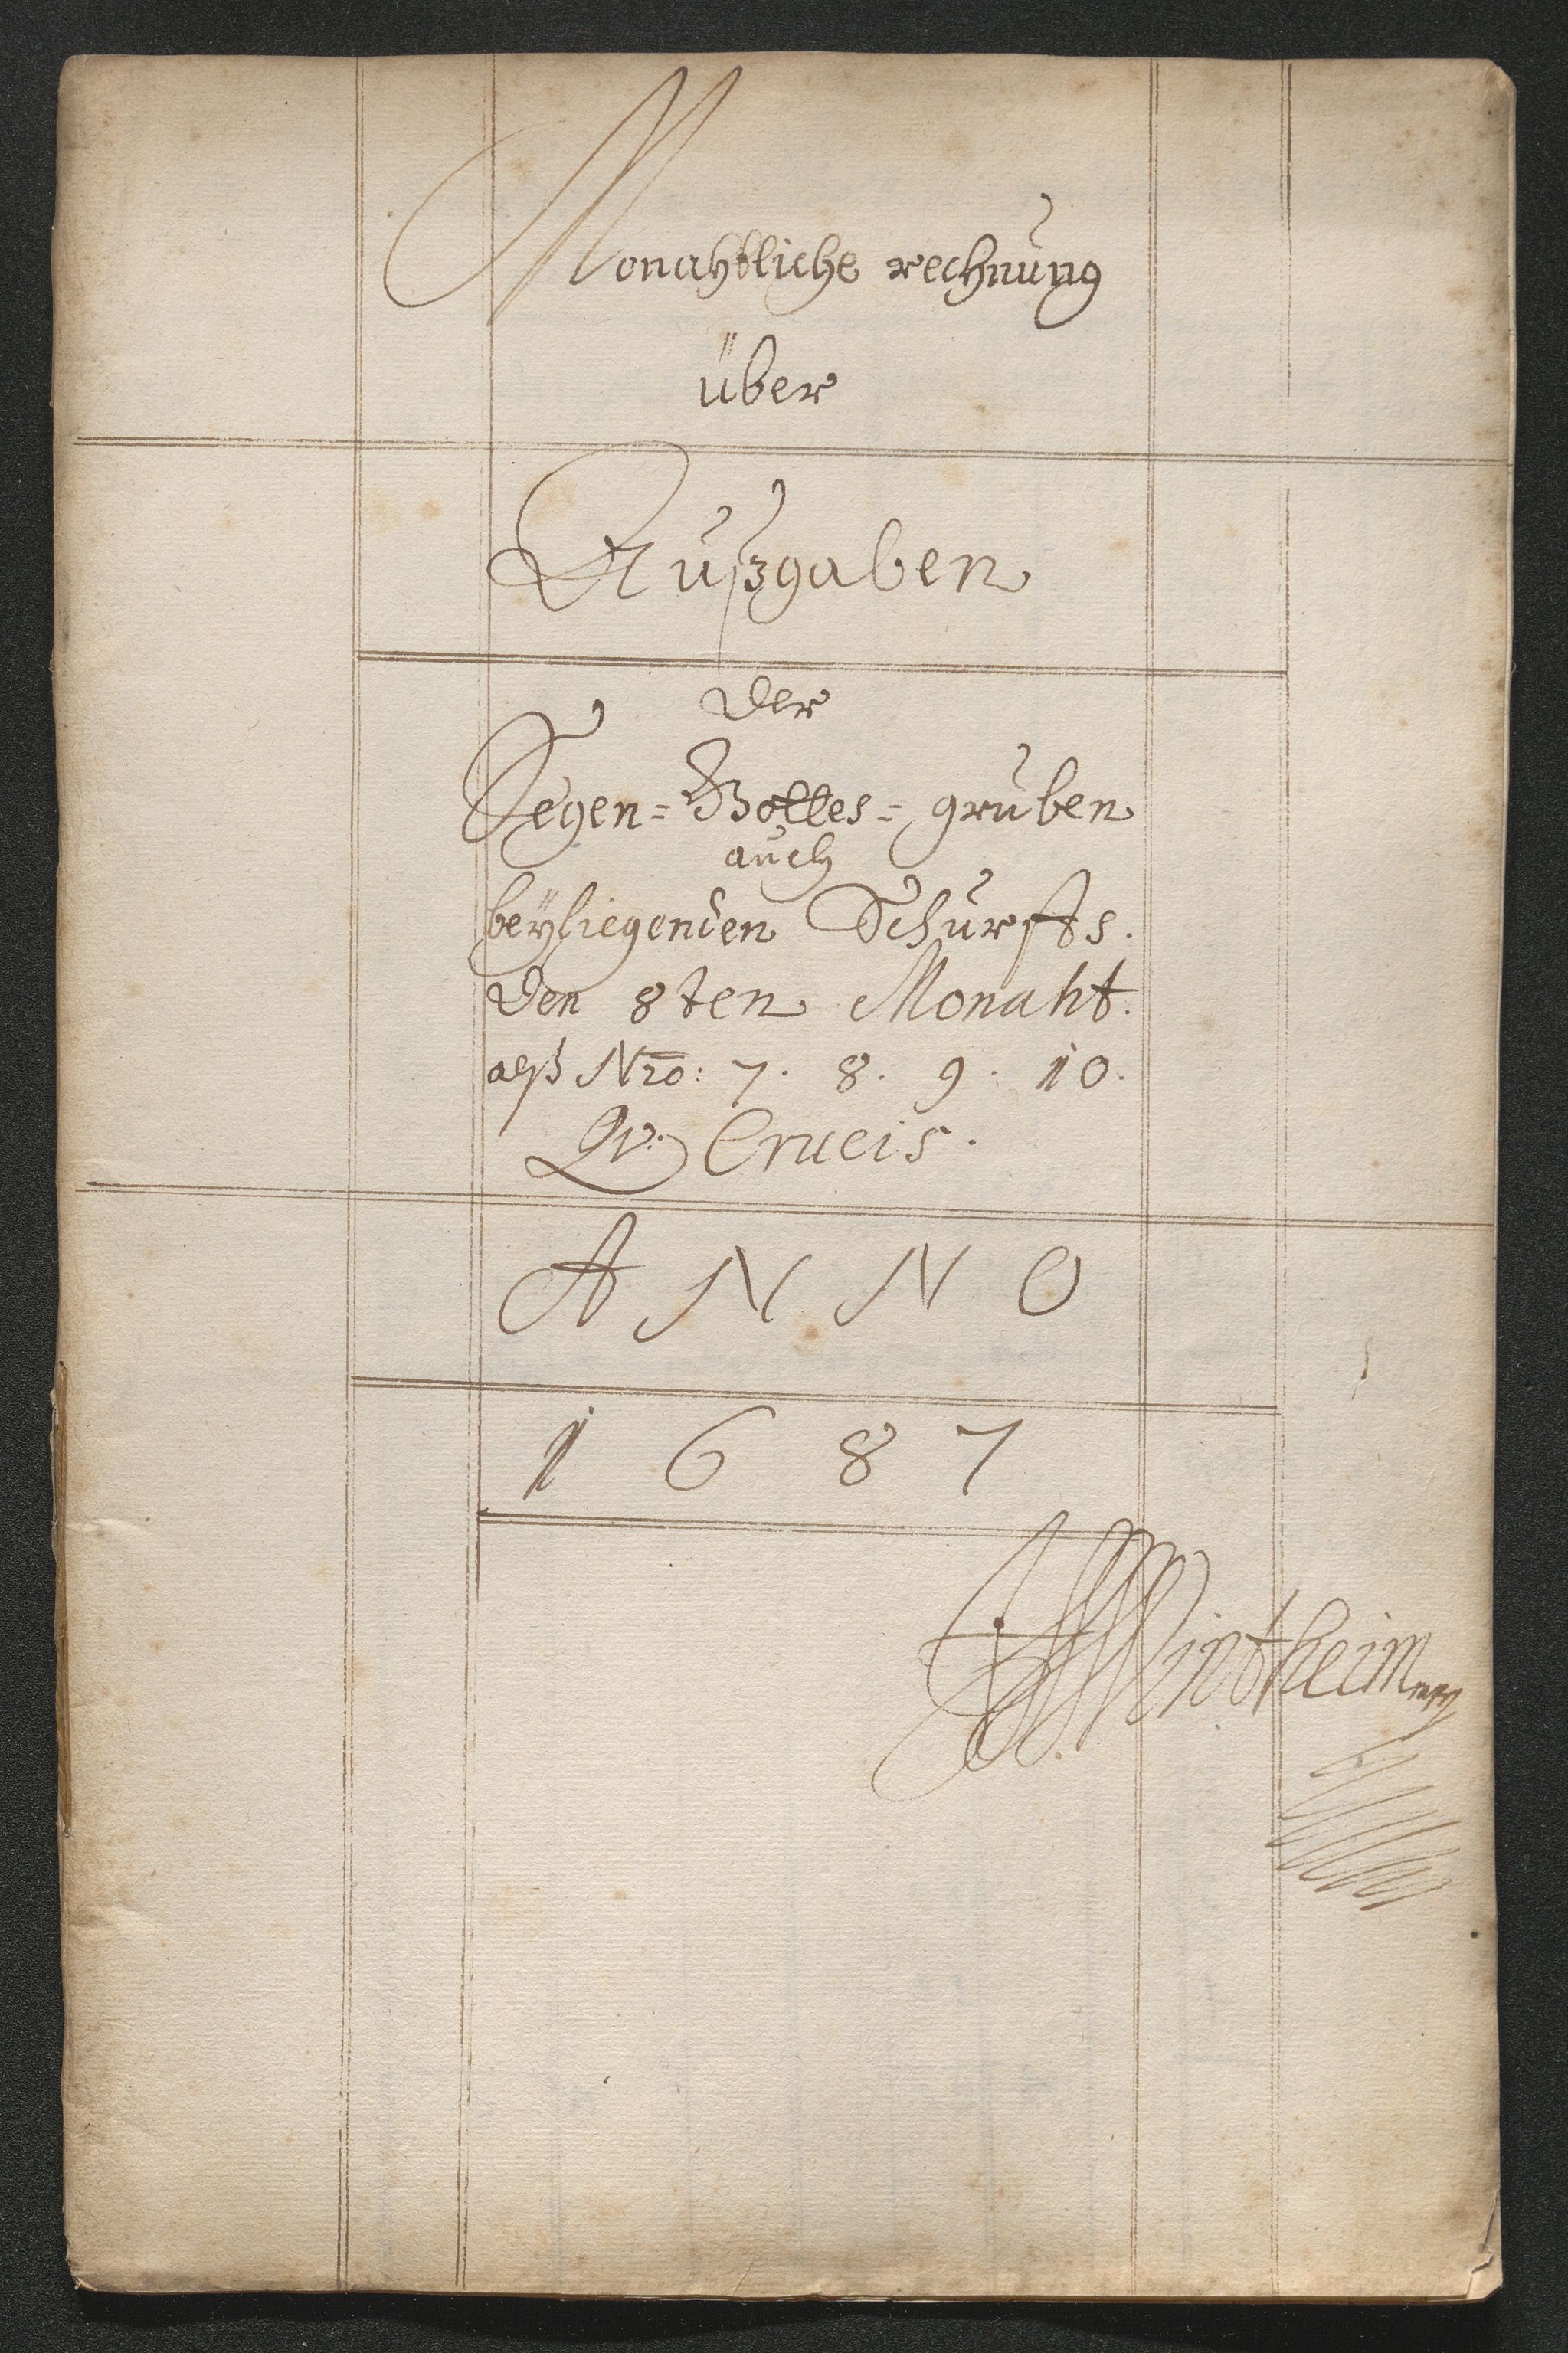 Monahtliche rechnung
über
Außgaben
der
Segen= Gottes= gruben
auch
beyliegenden Schurffts.
den 8ten Monaht.
alß Nro: 7. 8. 9. 10.
Qv: Crucis.
ANNO
1687
Wintheim